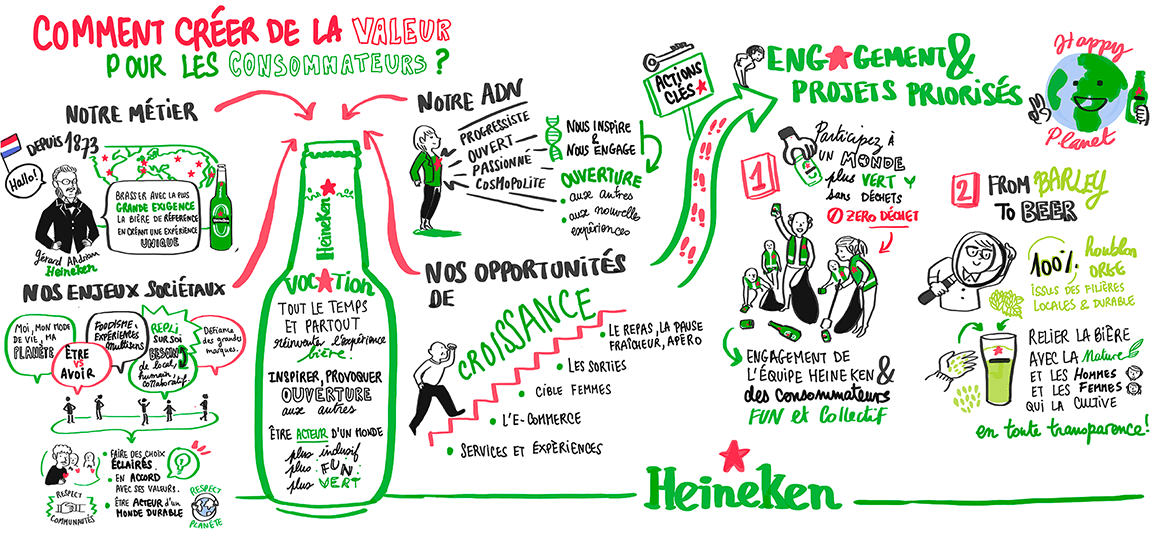 COMMENT CRÉER DE LA VALEUR
POUR LES CONSOMMATEURS ?
NOTRE MÉTIER
DEPUIS 1873
Hallo!
BRASSER AVEC LA PLUS
GRANDE EXIGENCE
LA BIÈRE DE RÉFÉRENCE
EN CRÉANT UNE EXPÉRIENCE
UNIQUE
Heineken
Gérard Adriaan
Heineken
NOS ENJEUX SOCIÉTAUX
Moi, MON MODE
DE VIE, MA
PLANÈTE
ÊTRE
VS
AVOIR
FOODISME,
EXPÉRIENCES
Multisens
REPLI
SUR SOI
BESOIN
de local,
humain
collaboratif
Défiance
des grandes
marques.
• FAIRE DES CHOIX
ÉCLAIRÉS
• EN ACCORD
AVEC SES VALEURS.
• ÊTRE ACTEUR d'un
MONDE DURABLE
RESPECT
COMMUNAUTÉS
RESPECT
PLANÈTE
Heineken
VOCATION
TOUT LE TEMPS
ET PARTOUT
réinventer l'expérience
bière!
INSPIRER, PROVOQUER
OUVERTURE
aux autres
ÊTRE ACTEUR D'UN MONDE
plus inclusif
plus FUN
plus VERT
NOTRE ADN
PROGRESSISTE
OUVERT
PASSIONNÉ
COSMOPOLITE
NOUS INSPIRE
&
NOUS ENGAGE
OUVERTURE
• aux autres
• aux nouvelles
expériences
NOS OPPORTUNITÉS
DE
CROISSANCE
• LE REPAS, LA PAUSE
FRAÎCHEUR, APÉRO
• LES SORTIES
• CIBLE FEMMES
• L'E-COMMERCE
• SERVICES ET EXPÉRIENCES
ACTIONS
CLÉS
ENGAGEMENT &
PROJETS PRIORISÉS
Happy
Planet
1
Participez à
UN MONDE
plus VERT
sans DÉCHETS
ZERO DÉCHET
ENGAGEMENT DE
L'ÉQUIPE HEINEKEN &
des consommateurs
FUN et Collectif
2
FROM BARLEY
TO BEER
100%
houblon
ORGE
ISSUS DES FILIÈRES
LOCALES & DURABLE
RELIER LA BIÈRE
AVEC LA Nature
ET LES HOMMES
ET LES FEMMES
QUI LA CULTIVE
en toute transparence!
Heineken